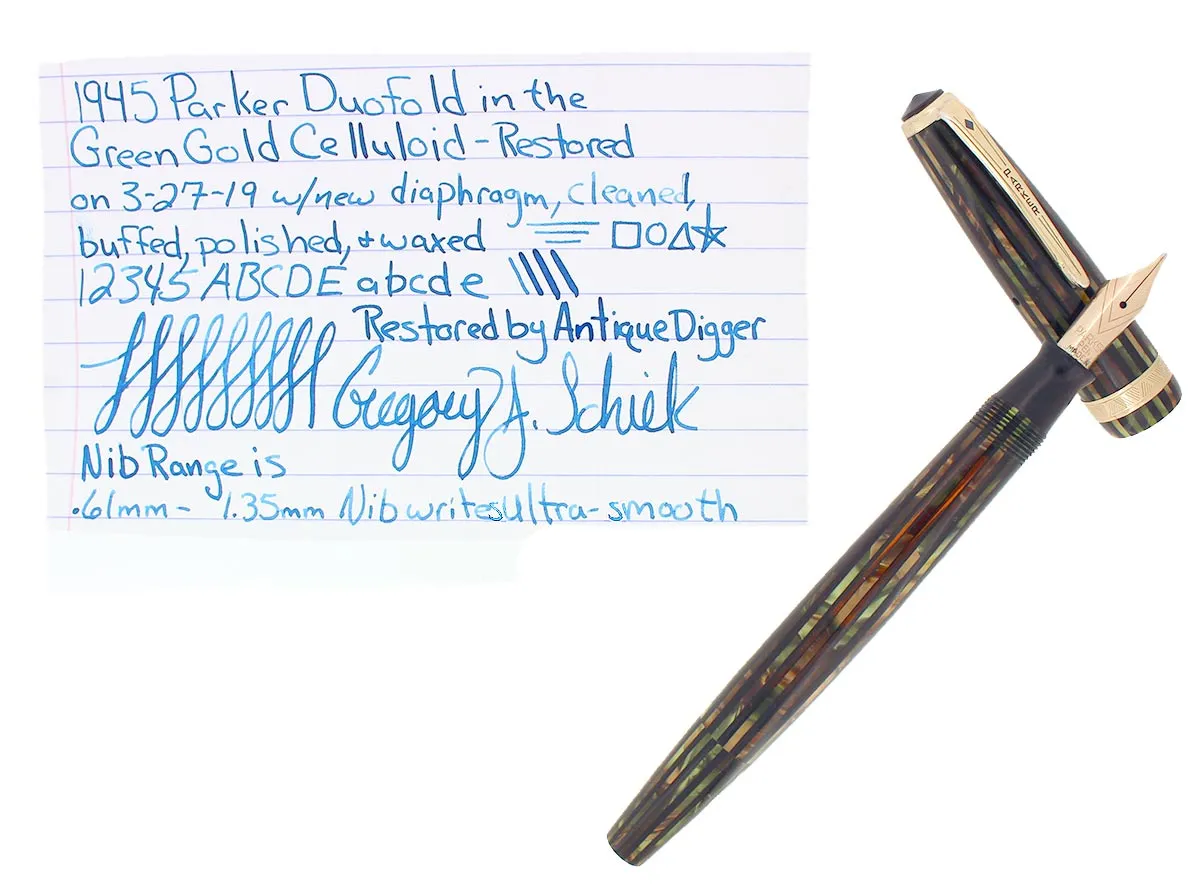 1945 Parker Duofold in the
Green Gold Celluloid - Restored
on 3-27-19 w/new diaphragm, cleaned,
buffed, polished, + waxed
12345 ABCDE abcde
Restored by Antique Digger
Gregory J. Schiek
Nib Range is
.61mm - 1.35mm Nib writes Ultra-smooth
PARKER